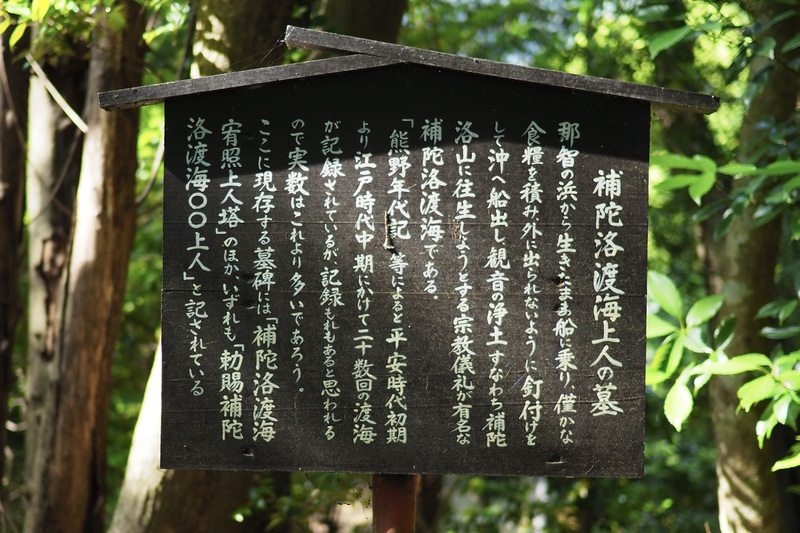 補陀洛渡海上人の墓
那智の浜から生きたまま船に乗り、僅かな
食糧を積み外に出られないように釘付けを
して沖へ船出し観音の浄土すなわち補陀
洛山に往生しようとする宗教儀礼が有名な
補陀洛渡海である。
「熊野年代記」等によると平安時代初期
より江戸時代中期にかけて二十数回の渡海
が記録されているが、記録もれもあると思われる
ので実数はこれより多いであろう。
ここに現存する墓碑には「補陀洛渡海
宥照上人塔」のほか、いずれも「勅賜補陀
洛渡海〇〇上人」と記されている